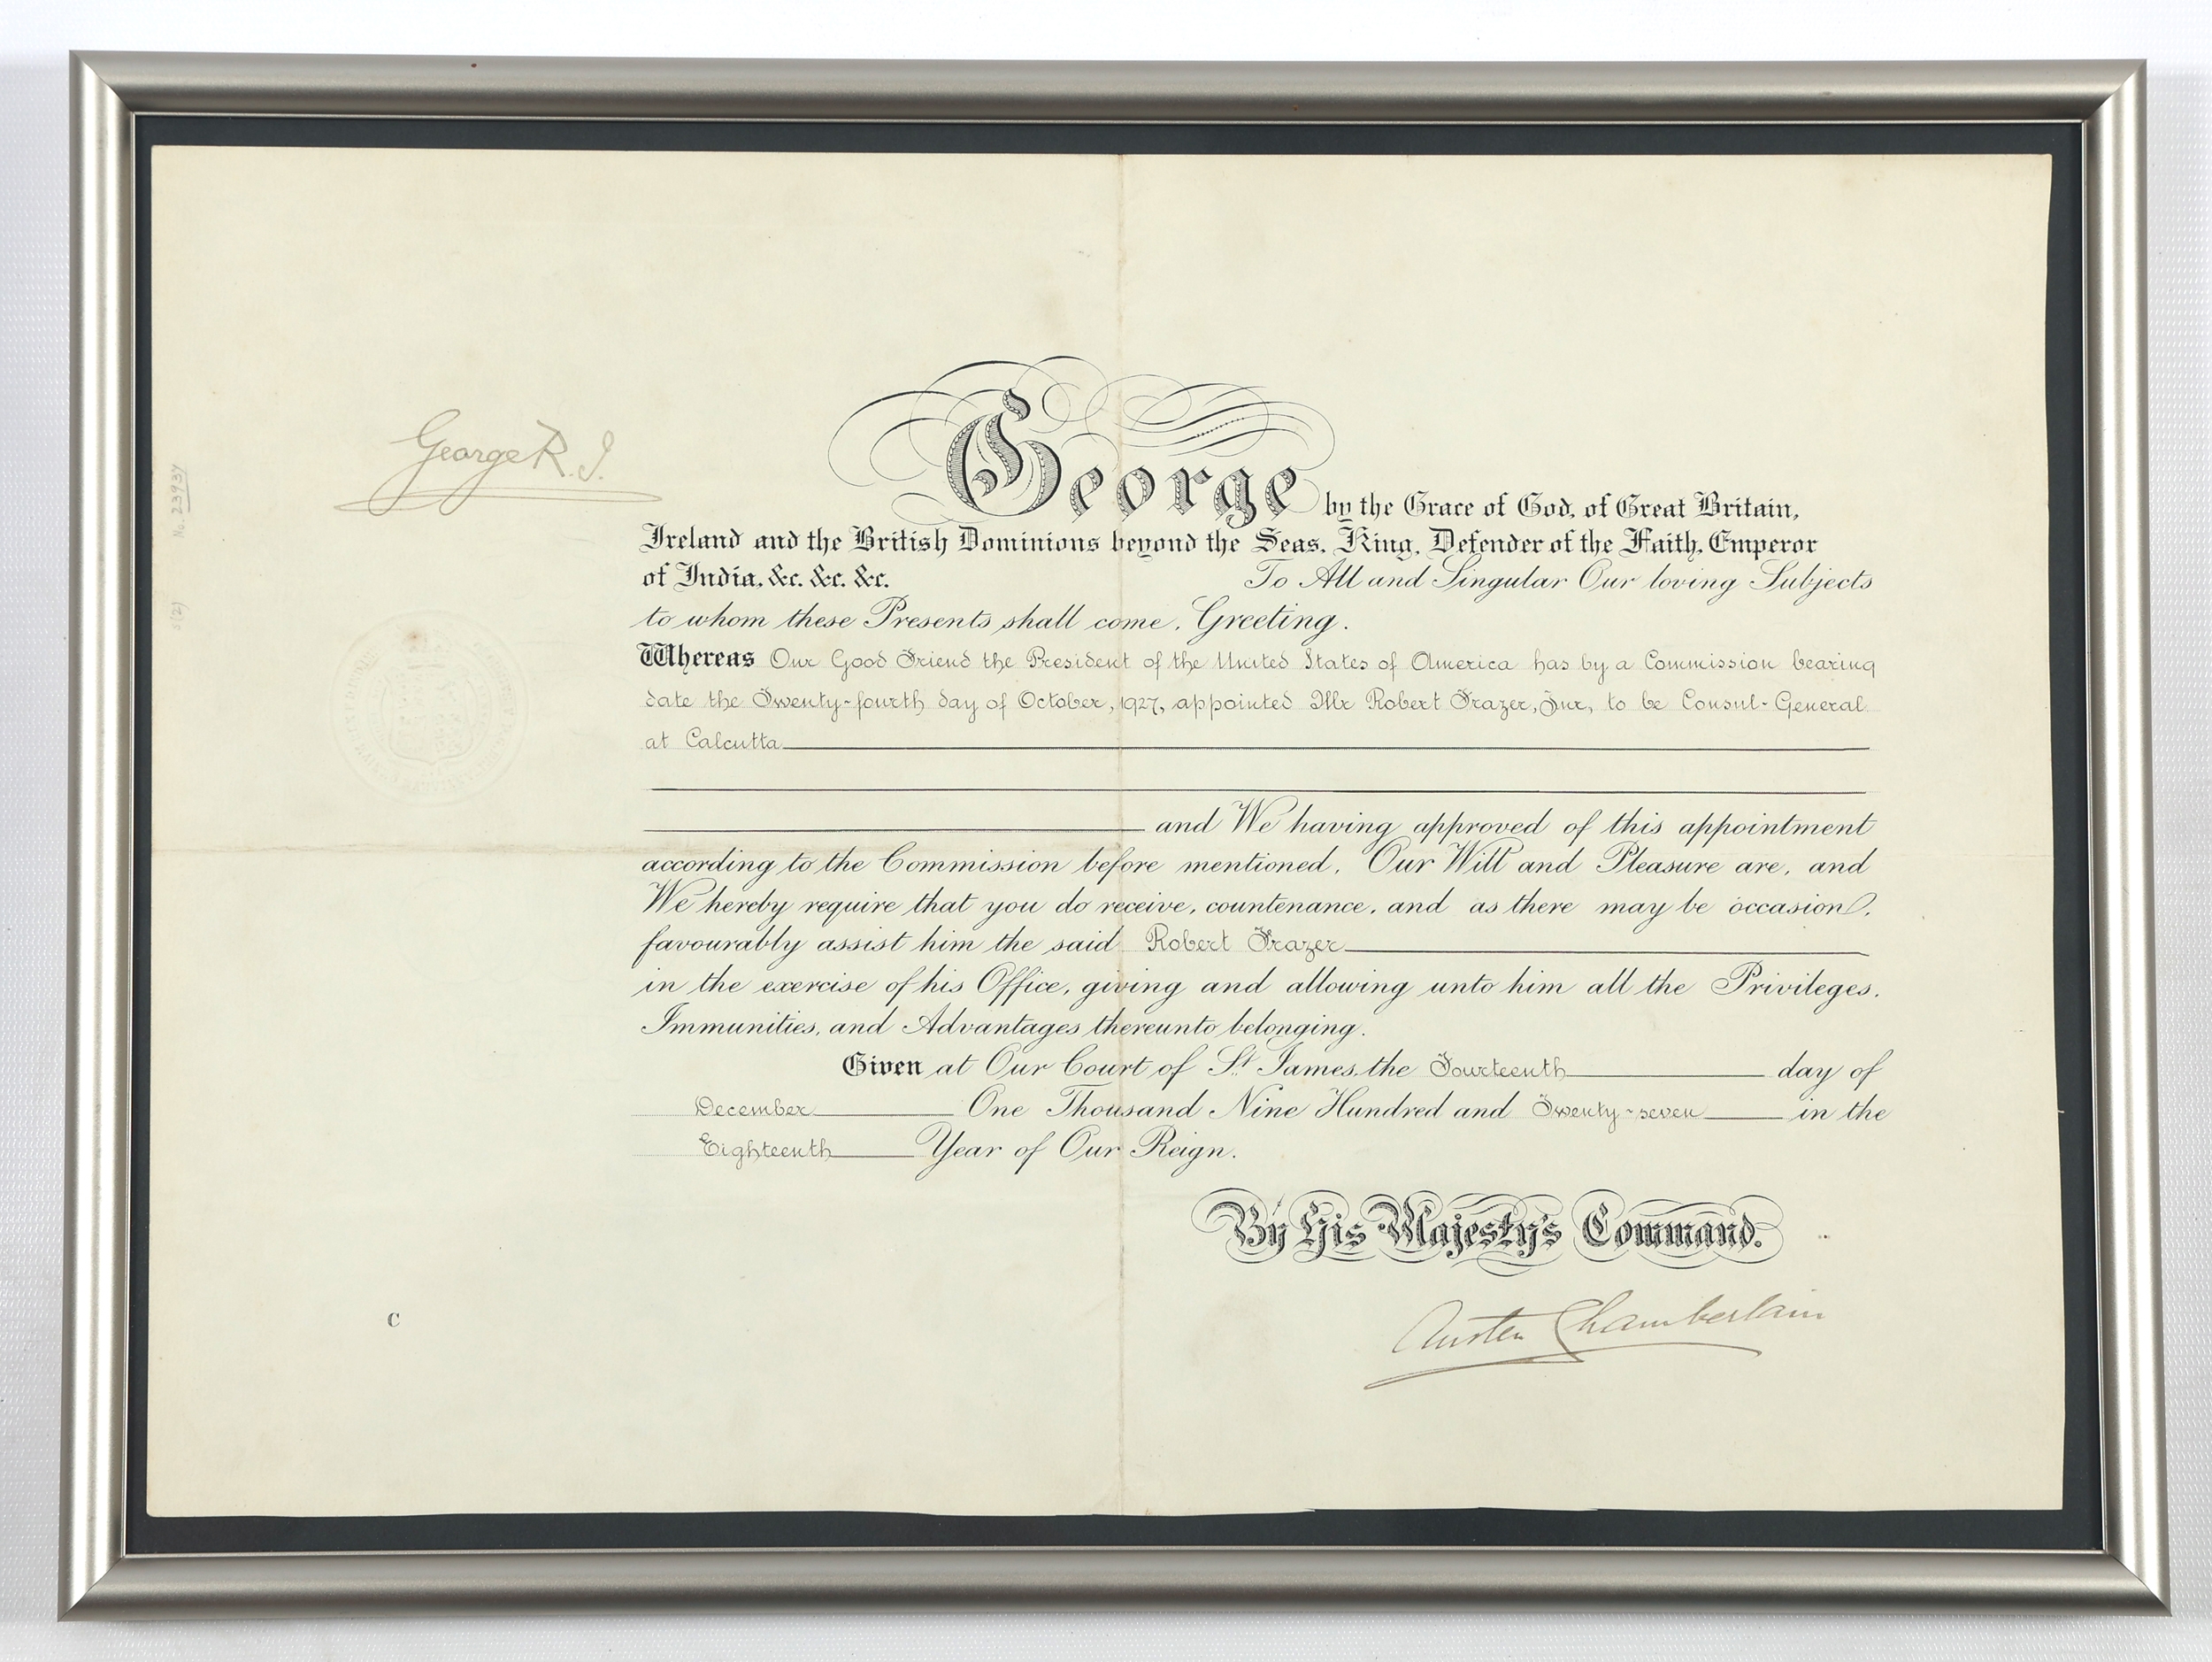 George R.I.
George by the Grace of God, of Great Britain,
Ireland and the British Dominions beyond the Seas, King, Defender of the Faith, Emperor
of India, &c. &c. &c. To All and Singular Our loving Subjects
to whom these Presents shall come, Greeting.
Whereas Our Good Friend the President of the United States of America has by a Commission bearing
date the Twenty-fourth day of October, 1927, appointed Mr Robert Frazer, Jnr, to be Consul-General
at Calcutta
and We having approved of this appointment
according to the Commission before mentioned, Our Will and Pleasure are, and
We hereby require that you do receive, countenance, and as there may be occasion,
favourably assist him the said Robert Frazer
in the exercise of his Office, giving and allowing unto him all the Privileges,
Immunities, and Advantages thereunto belonging.
Given at Our Court of St. James, the Fourteenth day of
December One Thousand Nine Hundred and Twenty-seven in the
Eighteenth Year of Our Reign.
By His Majesty's Command.
Austen Chamberlain
C